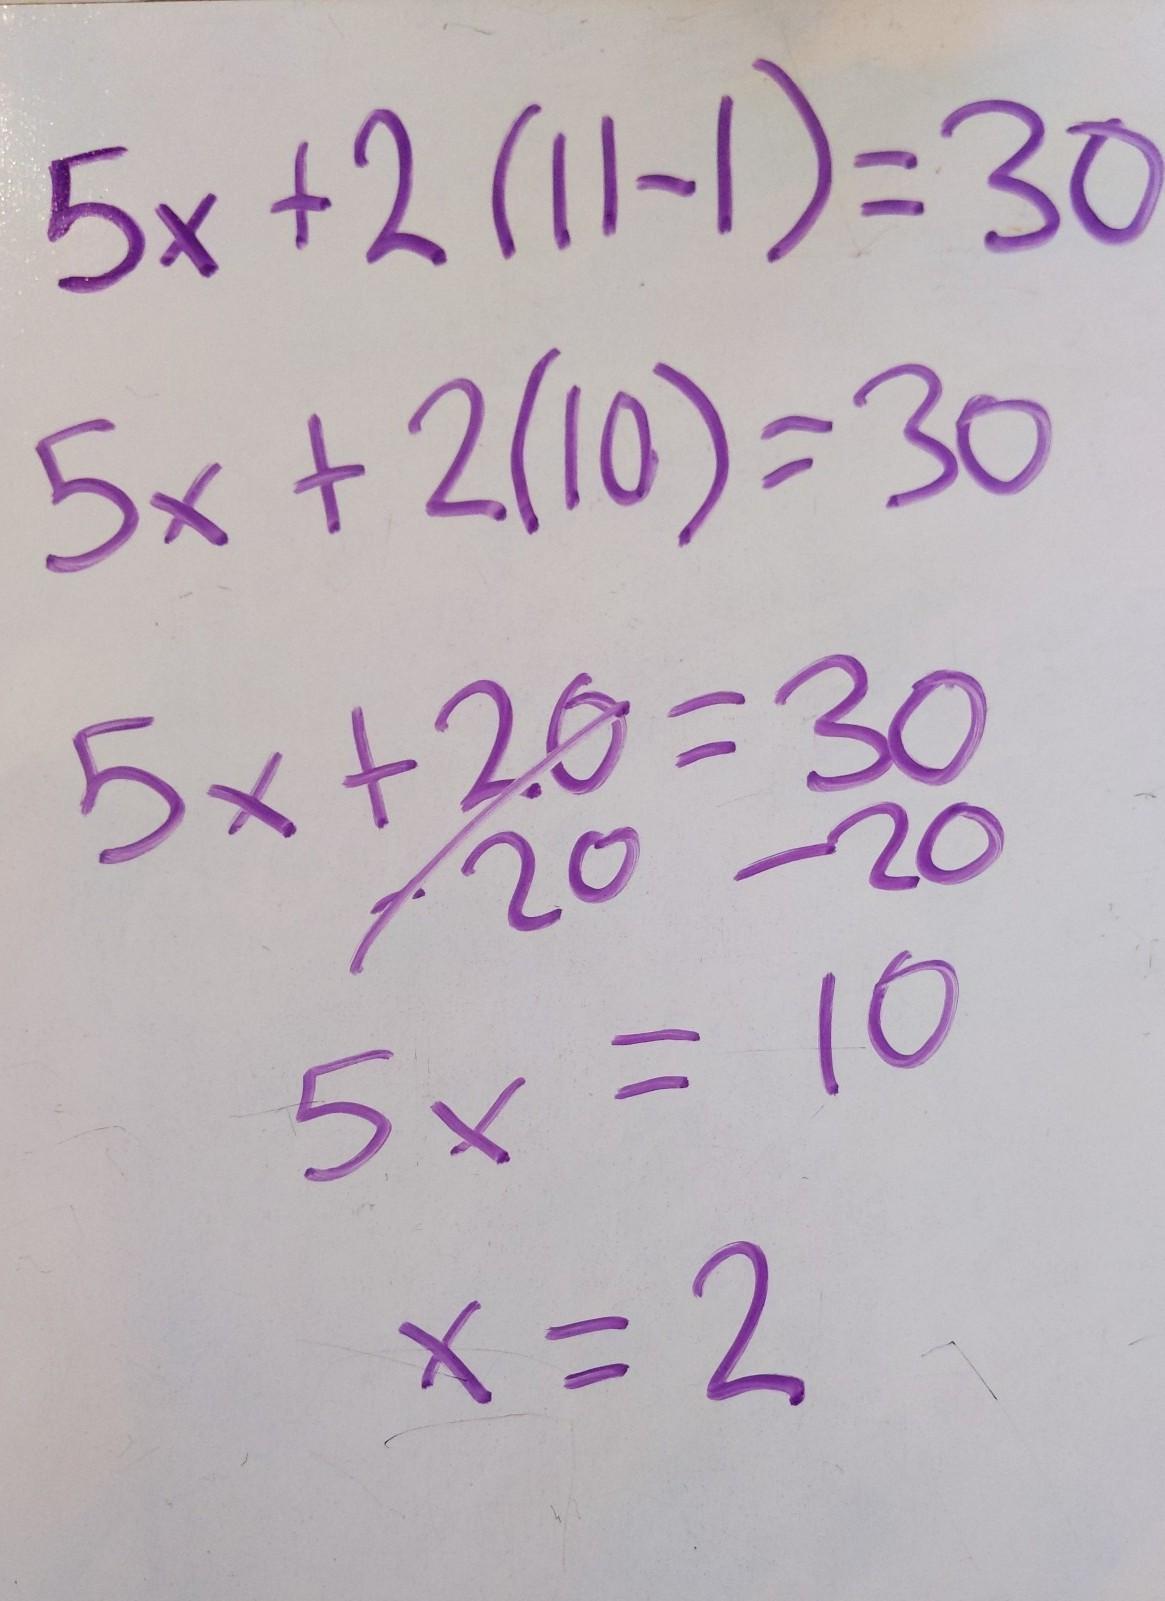 5x + 2 (11-1) = 30
5x + 2(10) = 30
5x + 20 = 30
-20 -20
5x = 10
x = 2